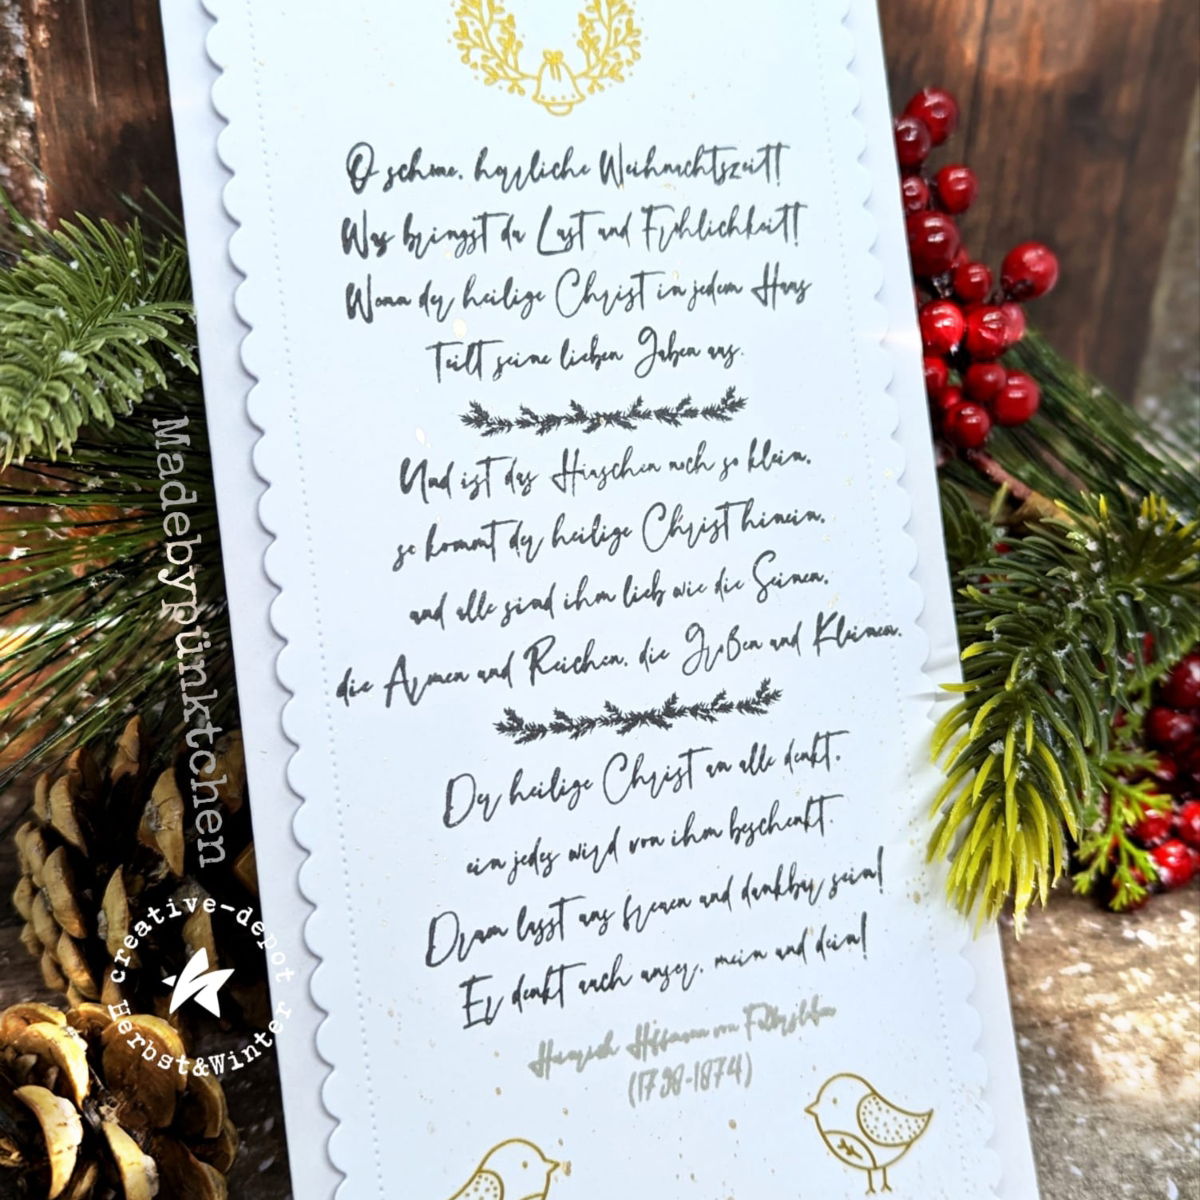 O schöne, herrliche Weihnachtszeit!
Was bringst du Lust und Fröhlichkeit!
Wenn der heilige Christ in jedem Haus
teilt seine lieben Gaben aus.
Und ist das Häuschen noch so klein,
so kommt der heilige Christ hinein,
und alle sind ihm lieb wie die Seinen,
die Armen und Reichen, die Großen und Kleinen.
Der heilige Christ an alle denkt,
ein jedes wird von ihm beschenkt.
Drum lasst uns freuen und dankbar sein!
Er denkt auch unser, mein und dein!
Heinrich Hoffmann von Fallersleben
(1798-1874)
Madebypünktchen
creative-depot
Herbst&Winter